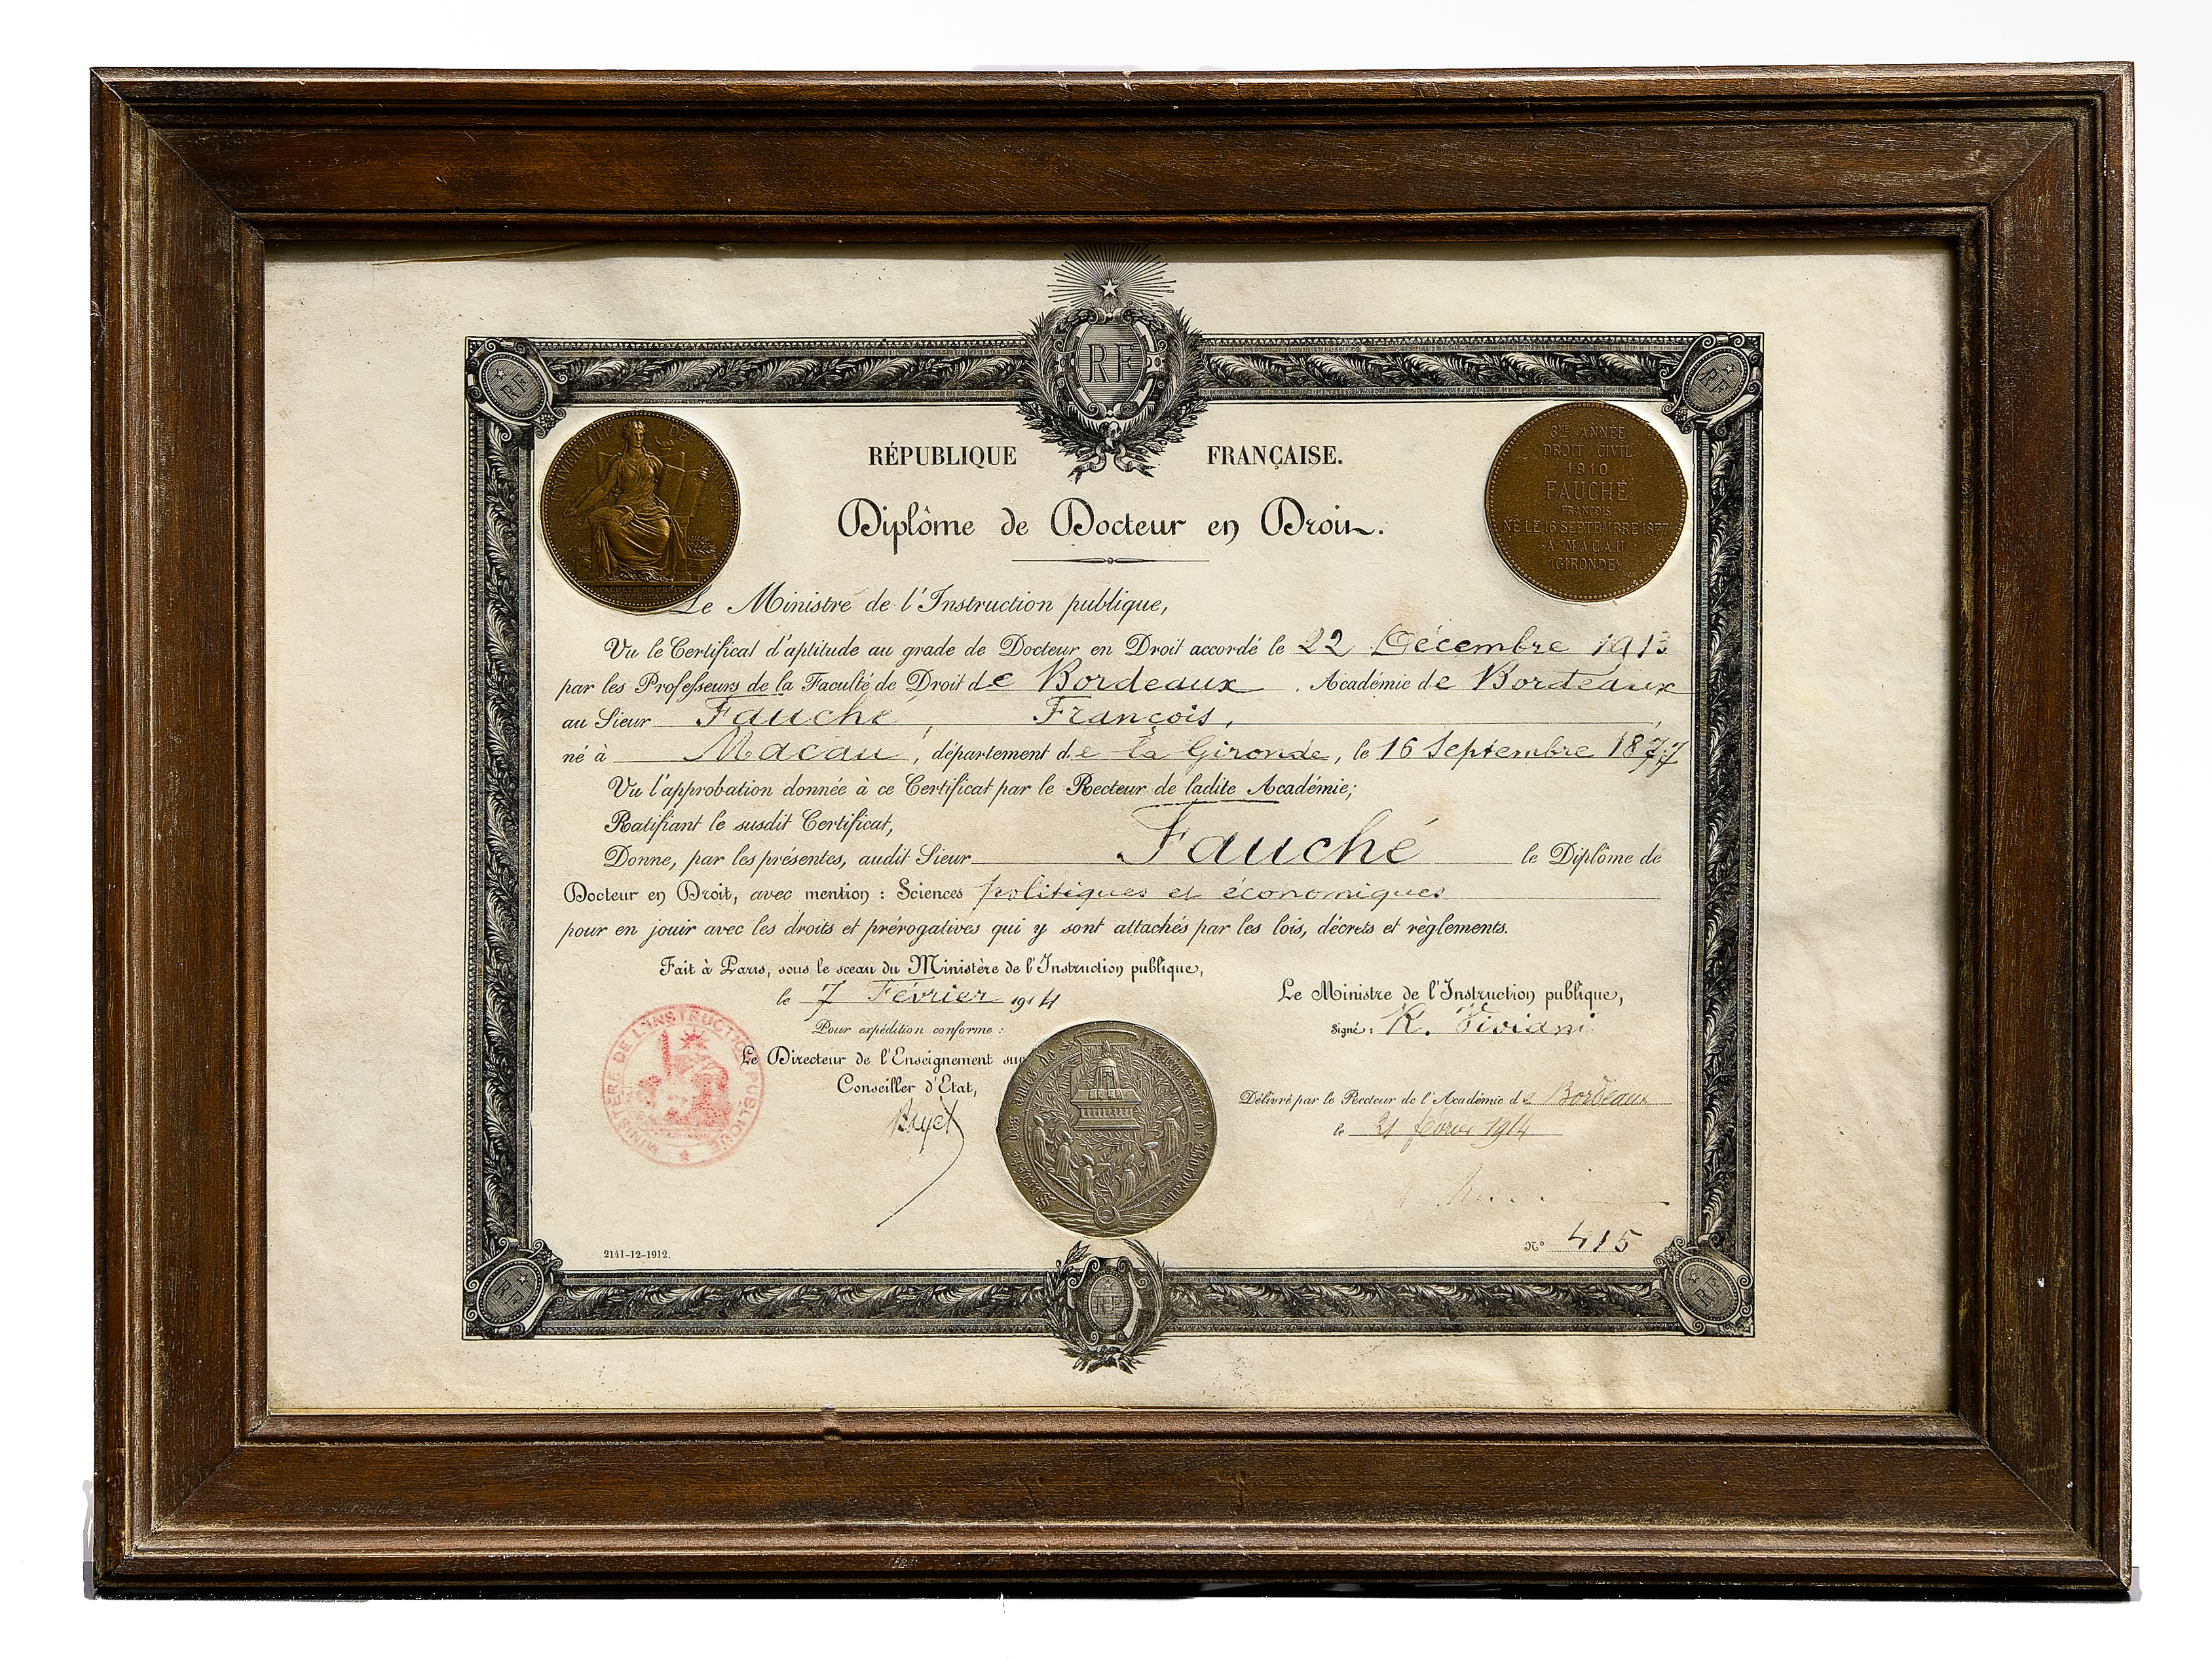 RF
RF
RF
UNIVERSITÉ DE FRANCE
FACULTÉ DE DROIT
DE BORDEAUX
3ME ANNÉE
DROIT CIVIL
1910
FAUCHÉ
FRANÇOIS
NÉ LE 16 SEPTEMBRE 1877
A MACAU
(GIRONDE)
RÉPUBLIQUE FRANÇAISE.
Diplôme de Docteur en Droit.
Le Ministre de l'Instruction publique,
Vu le Certificat d'aptitude au grade de Docteur en Droit accordé le 22 Décembre 1913
par les Professeurs de la Faculté de Droit de Bordeaux, Académie de Bordeaux
au Sieur Fauché, François,
né à Macau, département de la Gironde, le 16 Septembre 1877
Vu l'approbation donnée à ce Certificat par le Recteur de ladite Académie;
Ratifiant le susdit Certificat,
Donne, par les présentes, audit Sieur Fauché le Diplôme de
Docteur en Droit, avec mention : Sciences politiques et économiques
pour en jouir avec les droits et prérogatives qui y sont attachés par les lois, décrets et règlements.
Fait à Paris, sous le sceau du Ministère de l'Instruction publique,
le 7 Février 1914
Pour expédition conforme :
Le Directeur de l'Enseignement sup
Conseiller d'Etat,
MINISTÈRE DE L'INSTRUCTION PUBLIQUE
Société des Amis de l'Université de Bordeaux
Le Ministre de l'Instruction publique,
Signé : R. Viviani
Délivré par le Recteur de l'Académie de Bordeaux
le 21 février 1914
N° 415
2141-12-1912.
RF
RF
RF